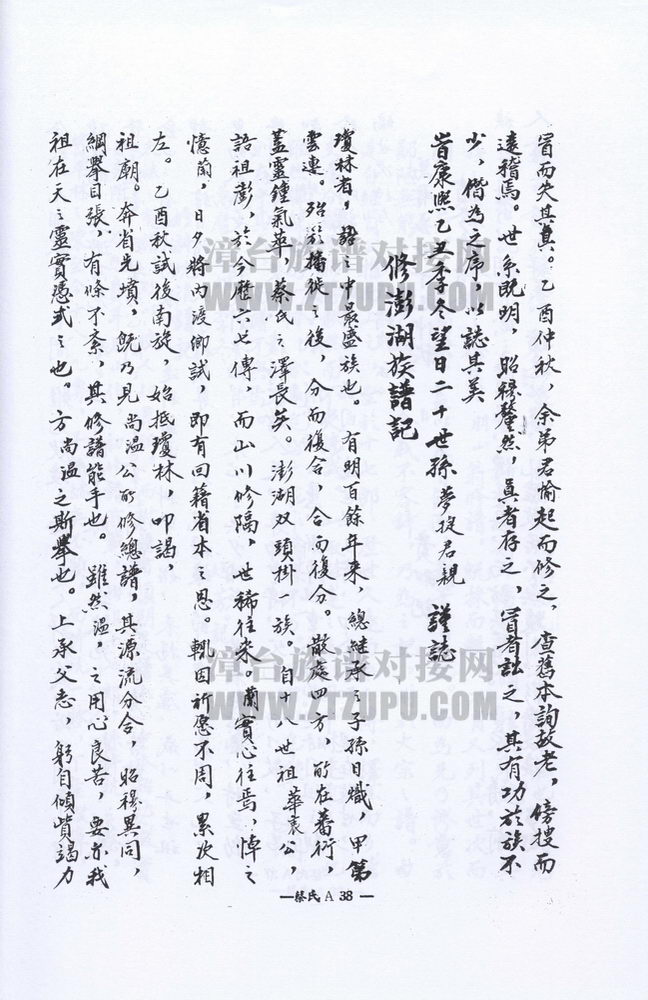 冒而失其真。乙酉仲秋，余弟君愉起而修之，查舊本詢故老，傍搜而
遠稽焉。世系既明，昭穆釐然，真者存之，冒者訟之，其有功於族不
少，僭為之序，以誌其美
旹康熙乙丑季冬望日二十世孫 夢 君親 謹誌
修澎湖族譜記
瓊林者，浯之中最盛族也。有明百餘年來，總継承之子孫日熾，甲第
雲連。殆 播徙之後，分而復合，合而復分。散處四方，所在蕃衍，
蓋靈鍾氣萃，蔡氏之澤長矣。澎湖双頭掛一族。自十八世祖華袁公，
語祖澎，於今歷六七傳，而山川修隔，世稀往来。蘭實心往焉，悼之
憶蘭，日夕將內渡鄉試，即有回籍省本之思。輒因祈愿不周，累次相
左。乙酉秋試後南旋，始抵瓊林，叩謁，
祖廟。奔省先墳，既乃見尚温公所修總譜，其源流分合，昭穆異同，
綱舉目張，有條不紊，其修譜能手也。雖然温。之用心良苦，要亦我
祖在天之靈實憑式之也。方尚温之斯舉也。上承父志，躬自傾貲竭力
—蔡氏 A 38 —
漳台族谱对接网
WWW.ZTZUPU.COM
漳台族谱对接网
WWW.ZTZUPU.COM